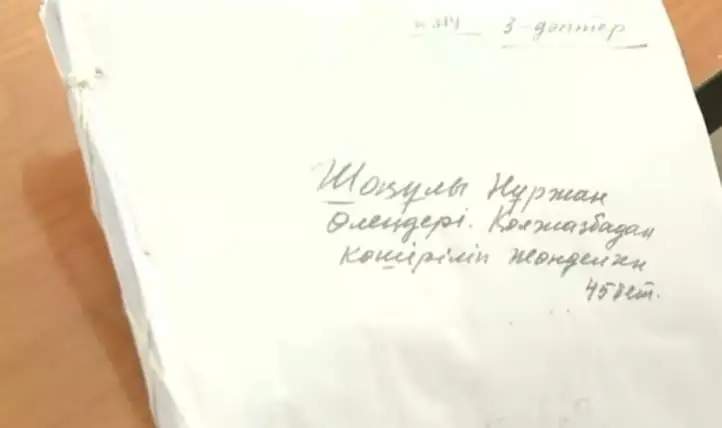 п 314 3-дәптер
Шоқұлы Нұржан
Өлеңдері. Қолжазбадан
көшірілін жөнделген
45 бет.